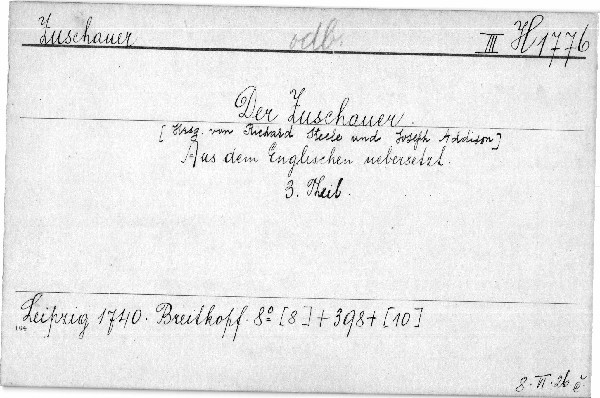 Zuschauer odb. III H 1776
Der Zuschauer.
[Hrsg. von Richard Steele und Joseph Addison]
Aus dem Englischen uebersetzt.
3. Theil.
Leipzig 1740. Breitkopf. 8° [8] + 398 + [10]
8. VI. 26 č